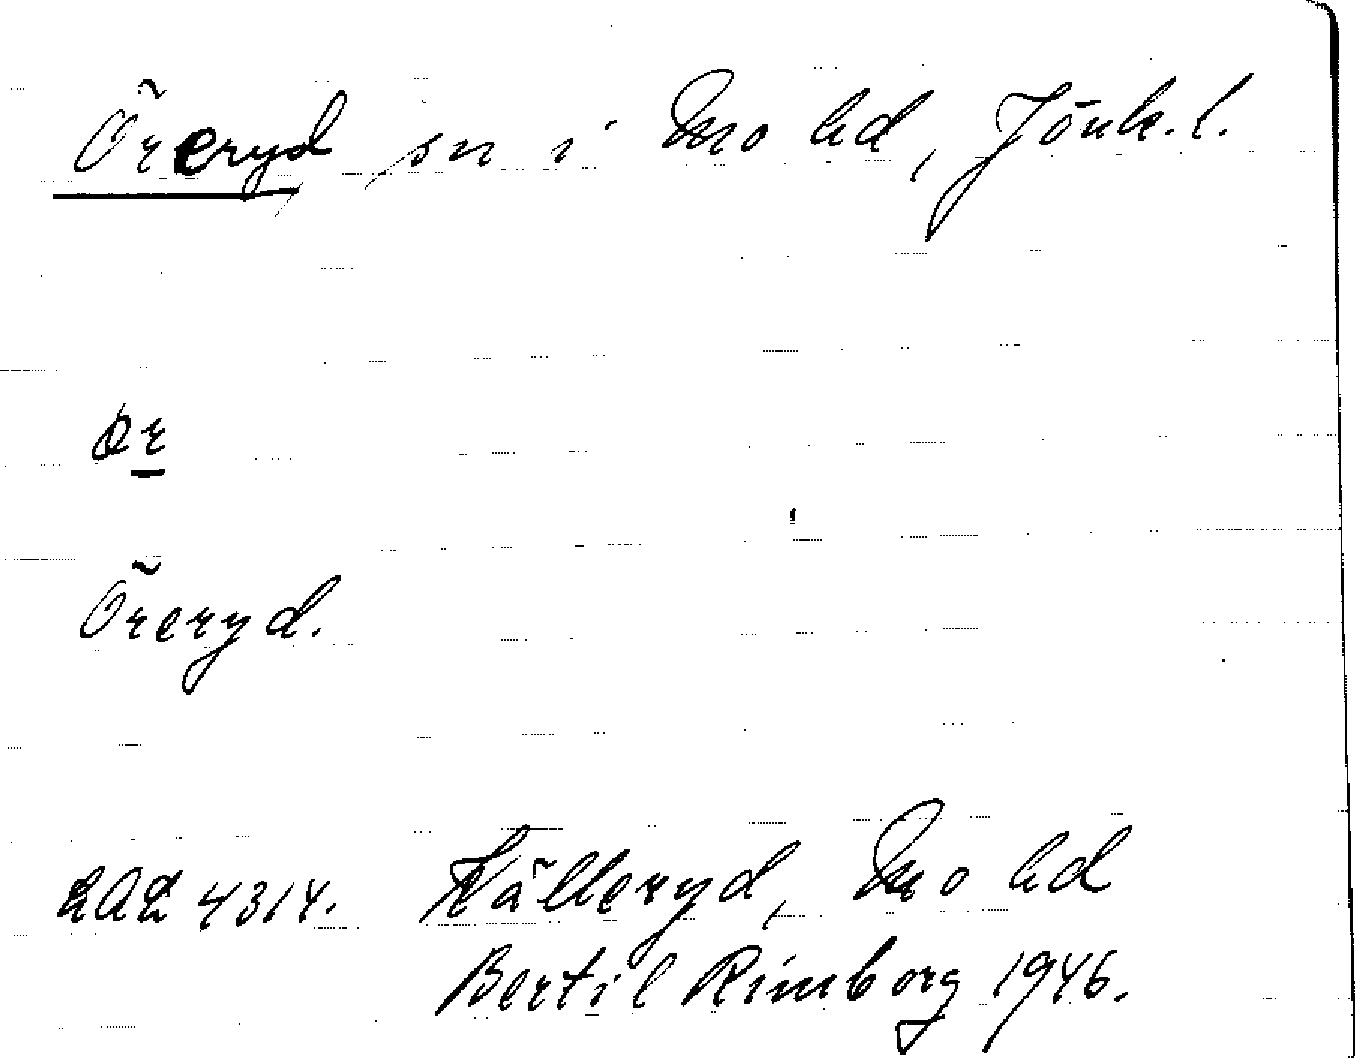 Öreryd sn i Mo hd, Jönk. l.
ør
Öreryd.
LAL 4314. Källeryd, Mo hd
Bertil Rimborg 1946.